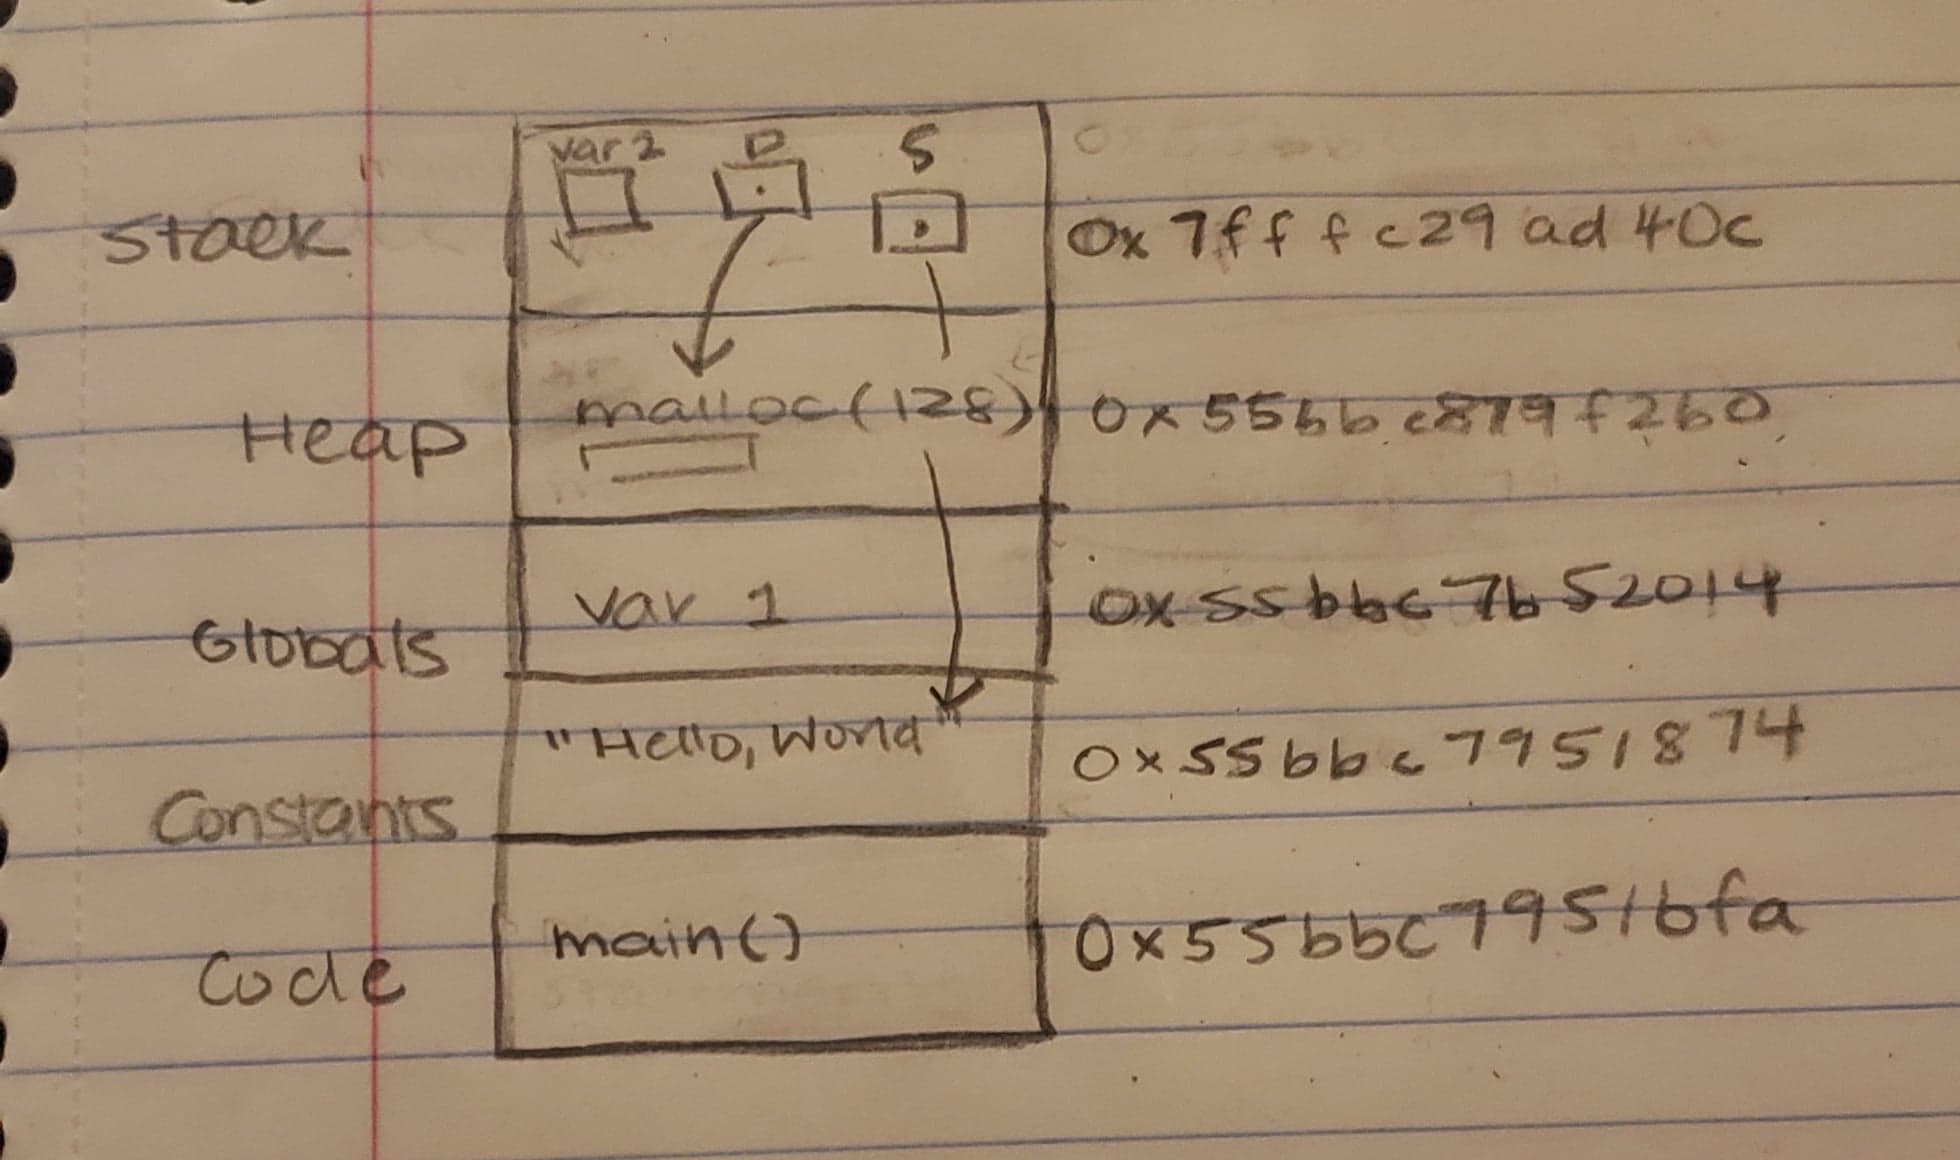 var 2 P S
Stack 0x7fffc29ad40c
Heap malloc(128) 0x55bbc879f260
Globals var 1 0x55bbc7b52014
"Hello, World" 0x55bbc7951874
Constants
main() 0x55bbc79516fa
Code